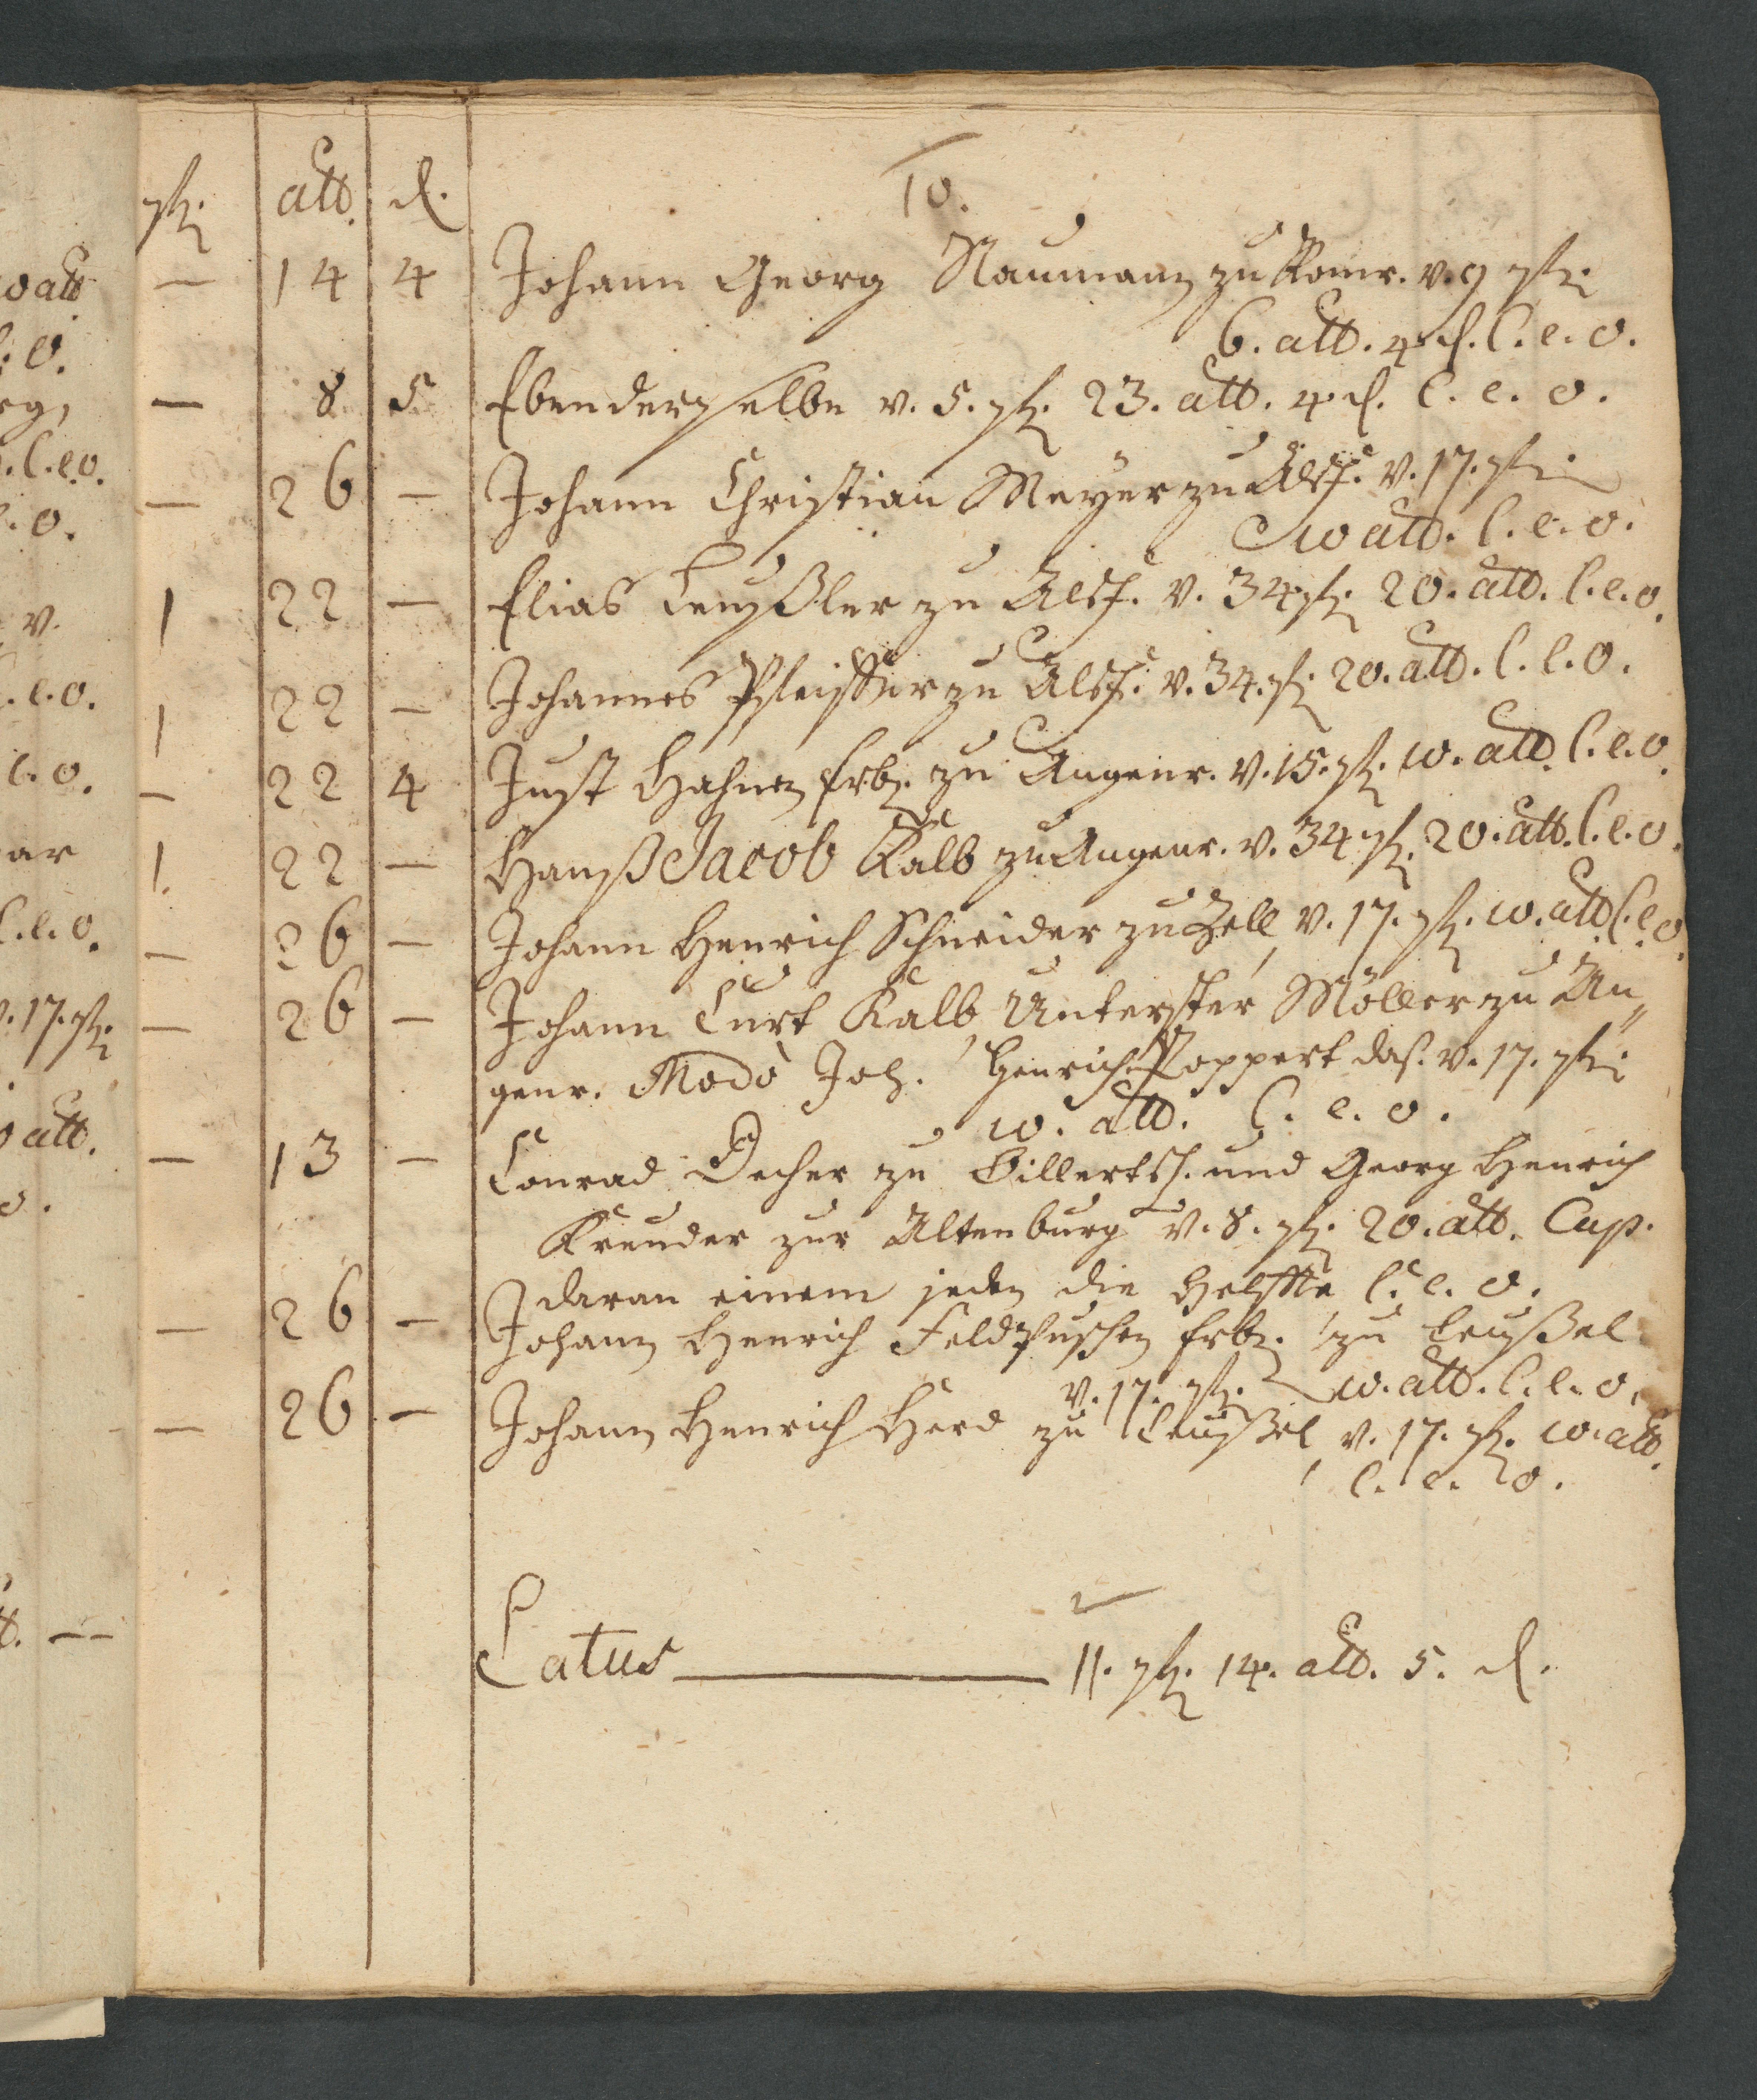 10.
rthl. alb. d.
— 14 4 Johann Georg Naumann zu Romr. v. 9 rthl.
6. alb. 4 d. C. e. o.
— 8 5 Ebenderselbe v. 5. rthl. 23. alb. 4 d. C. e. o.
— 26 — Johann Christian Meÿer zu Alsf. v. 17. rthl.
10 alb. C. e. o.
1 22 — Elias Leußler zu Alsf. v. 34 rthl. 20. alb. C. e. o.
1 22 — Johannes Pfeiffer zu Alsf. v. 34. rthl. 20. alb. C. e. o.
— 22 4 Just Hahnen Erb. zu Angenr. v. 15. rthl. 10. alb. C. e. o.
1. 22 — Hanß Jacob Kalb zu Angenr. v. 34 rthl. 20. alb. C. e. o.
— 26 — Johann Henrich Schneider zu Zell, v. 17. rthl. 10. alb C. e. o.
— 26 — Johann Curt Kalb, Unterster Möller zu An„
genr. Modò Joh. Henrich Poppert das. v. 17. rthl.
10. alb. C. e. o.
— 13 — Conrad Decher zu Billertsh. und Georg Henrich
Kreuder zur Altenburg v. 8. rthl. 20. alb. Cap.
daran einem jeden die Helffte C. e. o.
— 26 — Johann Henrich Feldpuschen Erb. zu Leußel
v. 17. rthl. 10. alb. C. e. o.
— 26 — Johann Henrich Herd zu Leußel, v. 17. rthl. 10. alb.
C. e. o.
Latus — 11. rthl. 14. alb. 5. d.